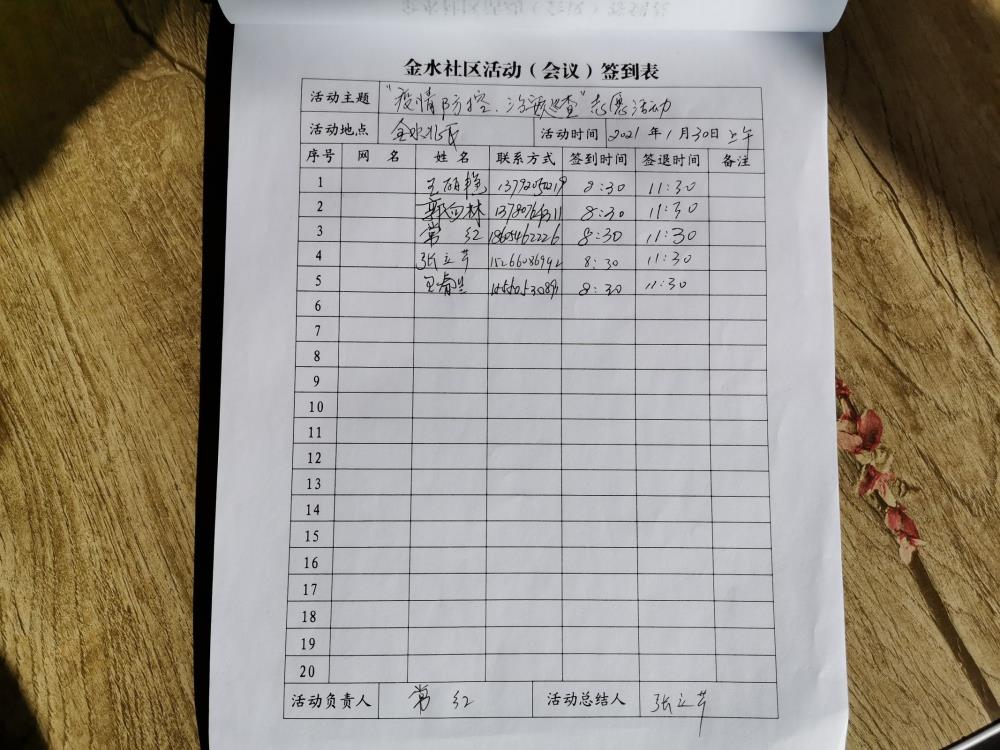 金水社区活动（会议）签到表
活动主题 "疫情防控、冷链巡查"志愿活动
活动地点 金水北区 活动时间 2021年1月30日上午
序号 网名 姓名 联系方式 签到时间 签退时间 备注
1 8:30 11:30
2 8:30 11:30
3 常红 18605462226 8:30 11:30
4 张立芹 15266086992 8:30 11:30
5 8:30 11:30
6
7
8
9
10
11
12
13
14
15
16
17
18
19
20
活动负责人 常红 活动总结人 张立芹